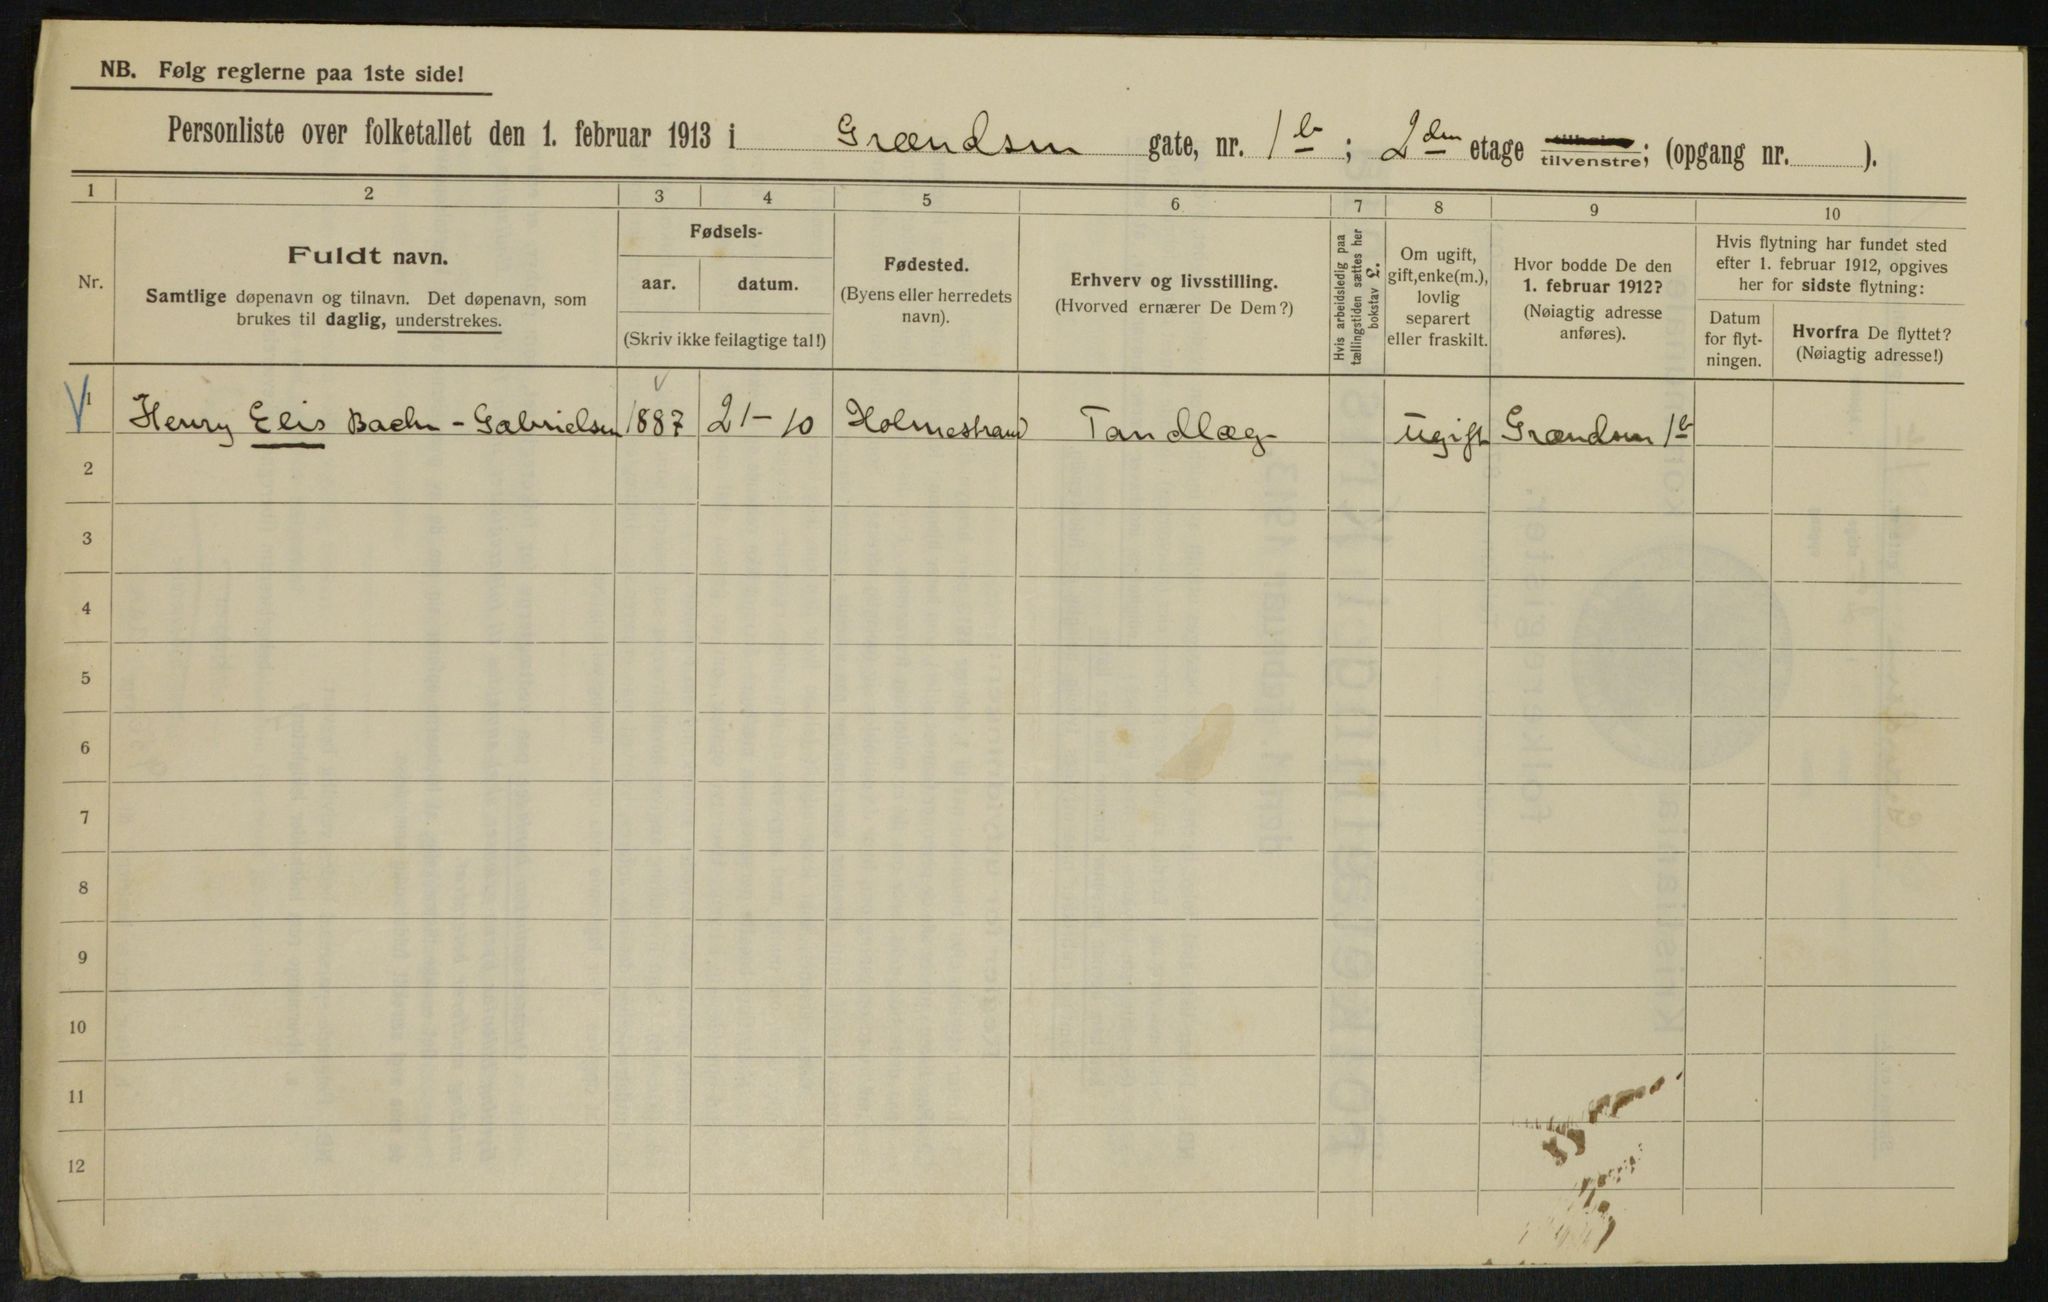 NB. Følg reglerne paa 1ste side!
Personliste over folketallet den 1. februar 1913 i Grændsen gate, nr. 1b; 2den etage tilhøire tilvenstre; (opgang nr. ).
1 2 3 4 5 6 7 8 9 10
Nr.
Fuldt navn.
Samtlige døpenavn og tilnavn. Det døpenavn, som
brukes til daglig, understrekes.
Fødsels-
aar. datum.
(Skriv ikke feilagtige tal!)
Fødested.
(Byens eller herredets
navn).
Erhverv og livsstilling.
(Hvorved ernærer De Dem?)
Hvis arbeidsledig paa
tællingstiden sættes her
bokstav L.
Om ugift,
gift, enke(m.),
lovlig
separert
eller fraskilt.
Hvor bodde De den
1. februar 1912?
(Nøiagtig adresse
anføres).
Hvis flytning har fundet sted
efter 1. februar 1912, opgives
her for sidste flytning:
Datum
for flyt-
ningen.
Hvorfra De flyttet?
(Nøiagtig adresse!)
1 Henry Elis Bache-Gabrielsen 1887 21-10 Holmestrand Tandlæge Ugift Grændsen 1b
2
3
4
5
6
7
8
9
10
11
12